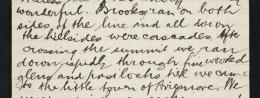 wonderful. Brooks ran on both
sides of the line and all down
the hillsides were cascades. After
crossing the summit we ran
down rapidly through fine wooded
glens and past lochs till we came
to the little town of Aviemore. We